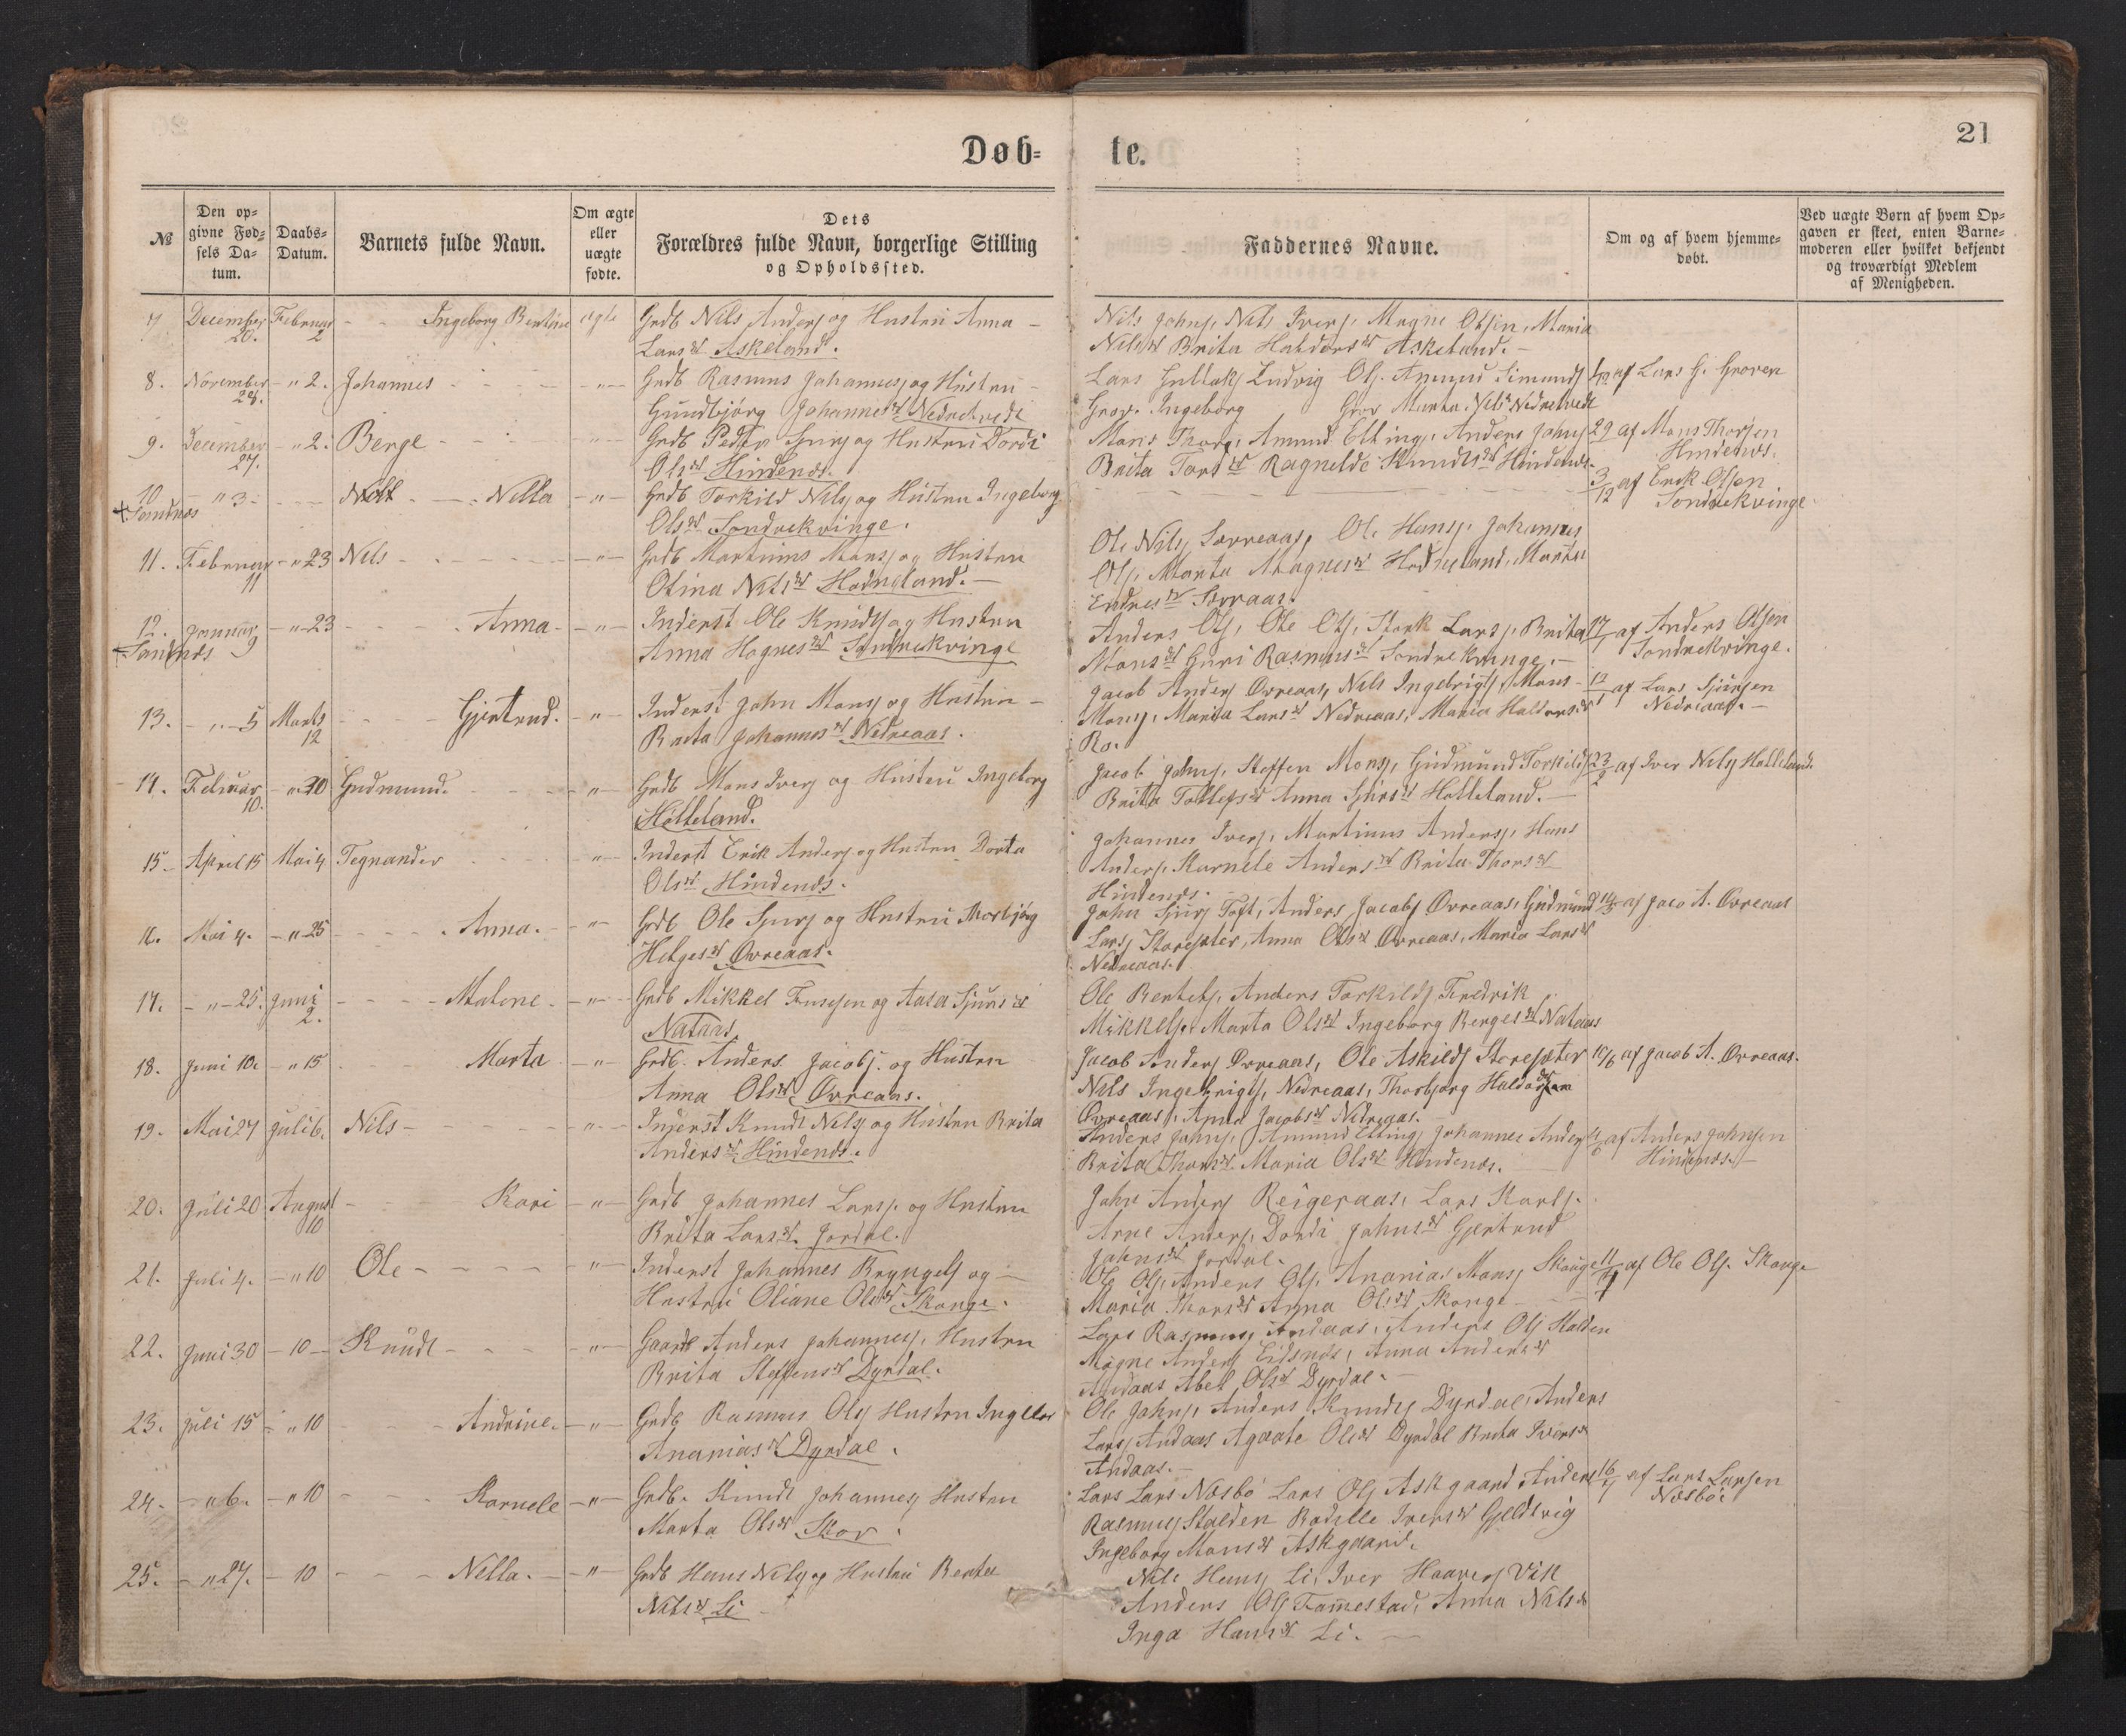 Døb= te.
21
№
Den op=
givne Fød=
sels Da=
tum.
Daabs=
Datum.
Barnets fulde Navn.
Om ægte
eller
uægte
fødte.
Dets
Forældres fulde Navn, borgerlige Stilling
og Opholdssted.
Faddernes Navne.
Om og af hvem hjemme=
døbt.
Ved uægte Børn af hvem Op=
gaven er skeet, enten Barne=
moderen eller hvilket bekjendt
og troværdigt Medlem
af Menigheden.
7 December 26. Februar 2 - - Ingeborg Bertine ægte Grdb Nils Andersj og Hustru Anna -
Larsdr Askeland.
Nils Johnsj, Nils Iversj, Magne Olsen, Maria
Nilsdr Brita Haldorsdr Askeland. -
8. November 28. - " 2. Johannes - " - Grdb Rasmus Johannesj og Hustru -
Gundbjórg Johannesdr Nedretvedt
Lars Gullaksj Ludvig Olsj. Amund Simundsj
Grov. Ingeborg Grov Marta Nilsdr Nedretvedt
af Lars G. Groven
9. December 27. - " 2. Berge - " - Grdb Peder Sjursj og Hustru Dordi
Olsdr Hindenæs.
Mons Thorsj. Amund Ellingsj. Anders Johnsj
Brita Torsdr Ragnilde Knudsdr Hindenæs.
29 af Mons Thorsen
Hindenæs.
10 - " 3 - Nella - " - Grdb Torkild Nilsj og Hustru Ingeborg
Olsdr Søndrekvinge.
3/12 af Erik Olsen
Søndrekvinge
11. Februar 11 - " 23 Nils - " - Grdb Martinus Monsj og Hustru
Olina Nilsdr Hodneland. -
Ole Nilsj Sørreaas, Ole Hansj. Johannes
Olsj. Marta Magnesdr Hodneland, Marta
Endresdr Sørraas.
12. Januar 9 - " 23 Anna - " - Inderst Ole Knudsj og Hustru
Anna Hagnesdr Søndrekvinge
Anders Olsj, Ole Olsj, Stork Larsj, Brita
Monsdr Guri Rasmusdr Søndrekvinge. -
17/1 af Anders Olsen
Søndrekvinge.
13. - " - 5 Marts 12 Gjertrud. - " - Inderst John Monsj og Hustru -
Brita Johannesdr Nedreaas.
Jacob Andersj Øvreaas, Nils Ingebrigtsj, Mons
Monsj, Marita Larsdr Nedreaas, Maria Haldorsdr
Ro.
12/1 af Lars Sjursen
Nedreaas. -
14. Februar 10. - " 30 Gudmund. - " - Grdb Mons Iversj og Hustru Ingeborg
Hølleland.
Jacob Johnsj, Steffen Monsj, Gudmund Torkildsj
Brita Tollefsdr Anna Sjursdr Hølleland. -
23/2 af Iver Nilsj Hølleland.
15 April 15 Mai 4 Tegnander - " - Inderst Erik Andersj og Hustru Dorta
Olsdr Hindenæs.
Johannes Iversj, Martinus Andersj, Hans
Andersj. Karnele Andersdr Brita Thorsdr
Hindenæs.
16. Mai 4. - " 25 Anna. - " - Grdb Ole Sjursj og Hustru Thorbjórg
Helgesdr Øvreaas.
John Sjursj Toft, Anders Jacobsj Øvreaas, Gudmund
Larsj Storesæter, Anna Olsdr Øvreaas, Maria Larsdr
Nedreaas.
af Jaco A. Øvreaas
17. - " - 25. Juni 2. Malene - " - Grdb Mikkel Tomesen og Aasa Sjursdr
Nataas
Ole Bertelsj, Anders Torkildsj Fredrik
Mikkelsj. Marta Olsdr Ingeborg Bergesdr Nataas
18. Juni 10. - " 15 Marta - " - Grdb. Anders Jacobsj. og Hustru
Anna Olsdr Øvreaas.
Jacob Andersj Øvreaas, Ole Askildsj Storesæter
Nils Ingebrigtsj, Nedreaas, Thorbjørg Haldorsdr
Øvreaas. Anna Jacobsdr Nedreaas.
10/6 af Jacob A. Øvreaas.
19. Mai 27 Juli 6. Nils - " - Inderst Knudt Nilsj og Hustru Brita
Andersdr Hindenæs.
Anders Johnsj. Amund Ellingsj Johannes Andersj
Brita Thorsdr. Maria Olsdr Hindenæs.
af Anders Johnsen
Hindenæs. -
20. Juli 20 August 10 Kari - " - Grdb Johannes Larsj. og Hustru
Brita Larsdr. Jordal.
John Andersj Reigeraas, Lars Karlsj.
Arne Andersj. Dordi Johnsdr Gjertrud
Johnsdr Jordal.
21. Juli 4. - " 10 Ole - " - Inderst Johannes Bryngelsj og -
Hustru Oliane Olsdr Skauge.
Ole Olsj. Anders Olsj. Ananias Monsj Skauge
Maria Thorsdr Anna Olsdr Skauge
af Ole Olsj. Skauge
22. Juni 30 - 10 - Knudt - " - Gaardb Anders Johannesj. Hustru
Brita Steffensdr Dyrdal.
Lars Rasmusj Andaas, Anders Olsj Halden
Magne Andersj Eidsnæs, Anna Andersdr
Andaas Abel Olsdr Dyrdal.
23. Juli 15 - " 10 Andrine. - " - Grdb Rasmus Olsj Hustru Ingebor
Ananiasdr Dyrdal.
Ole Johnsj. Anders Knudsj Dyrdal, Anders
Larsj Andaas Agaate Olsdr Dyrdal Brita Iversdr
Andaas. -
24. - " 6. - " 10 Karnele - " - Grdb. Knudt Johannesj Hustru
Marta Olsdr Skor.
Lars Lars Næsbø Lars Olsj Askgaard Anders
Rasmusj Halden Bodille Iversdr Gjeldvig
Ingeborg Monsdr Askgaard.
16/7 af Lars Larsen
Næsbø
25. - " 27. - 10 Nella. - " - Grdb Hans Nilsj og Hustru Berta
Nilsdr Li
Nils Hansj Li, Iver Haaversj Vik
Anders Olsj Tommestad, Anna Nilsdr
Inga Hansdr Li. -